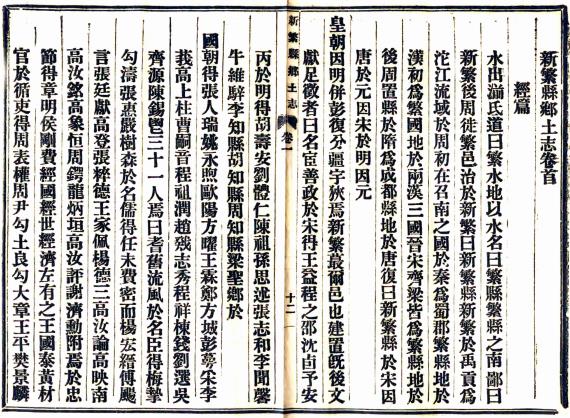 新繁縣鄉土志卷首
經篇
水出湔氐道曰繁水地以水名曰繁縣繁縣之南鄙曰
新繁後周徙繁邑治於新繁曰新繁縣新繁於禹貢爲
沱江流域於周初在召南之國於秦爲蜀郡繁縣地於
漢初爲繁國地於兩漢三國晉宋齊梁皆爲繁縣地於
後周置縣於隋爲成都縣地於唐復曰新繁縣於宋因
唐於元因宋於明因元
皇朝因明併彭復分疆宇狹焉新繁蕞爾邑也建置旣後文
獻足徵者曰名宦善政於宋得王益程之邵沈卣予安
新繁縣鄉土志
卷一
十二
丙於明得胡壽安劉體仁陳祖孫思述張志和李聞馨
牛維騂李知縣胡知縣周知縣梁聖鄉於
國朝得張人瑞姚永煦歐陽方曜王霖鄭方城彭蔂宋李
莪高上桂曹嗣音程祖潤趙殘志秀程祥棟錢劉選吳
齊源陳錫鬯三十一人焉曰耆舊流風於名臣得梅摯
勾濤張惠嚴樹森於名儒得任末費密而楊宏縉傅颺
言張廷獻高登張粹德王家佩楊德三高汝諭高映南
高汝銘高象恒周鍔龍炳垣高汝許謝濟勳附焉於忠
節得章明侯剛費經國經世經濟左有之王國泰黃材
官於循吏得周表權周尹勾士良勾大章王平樊景麟